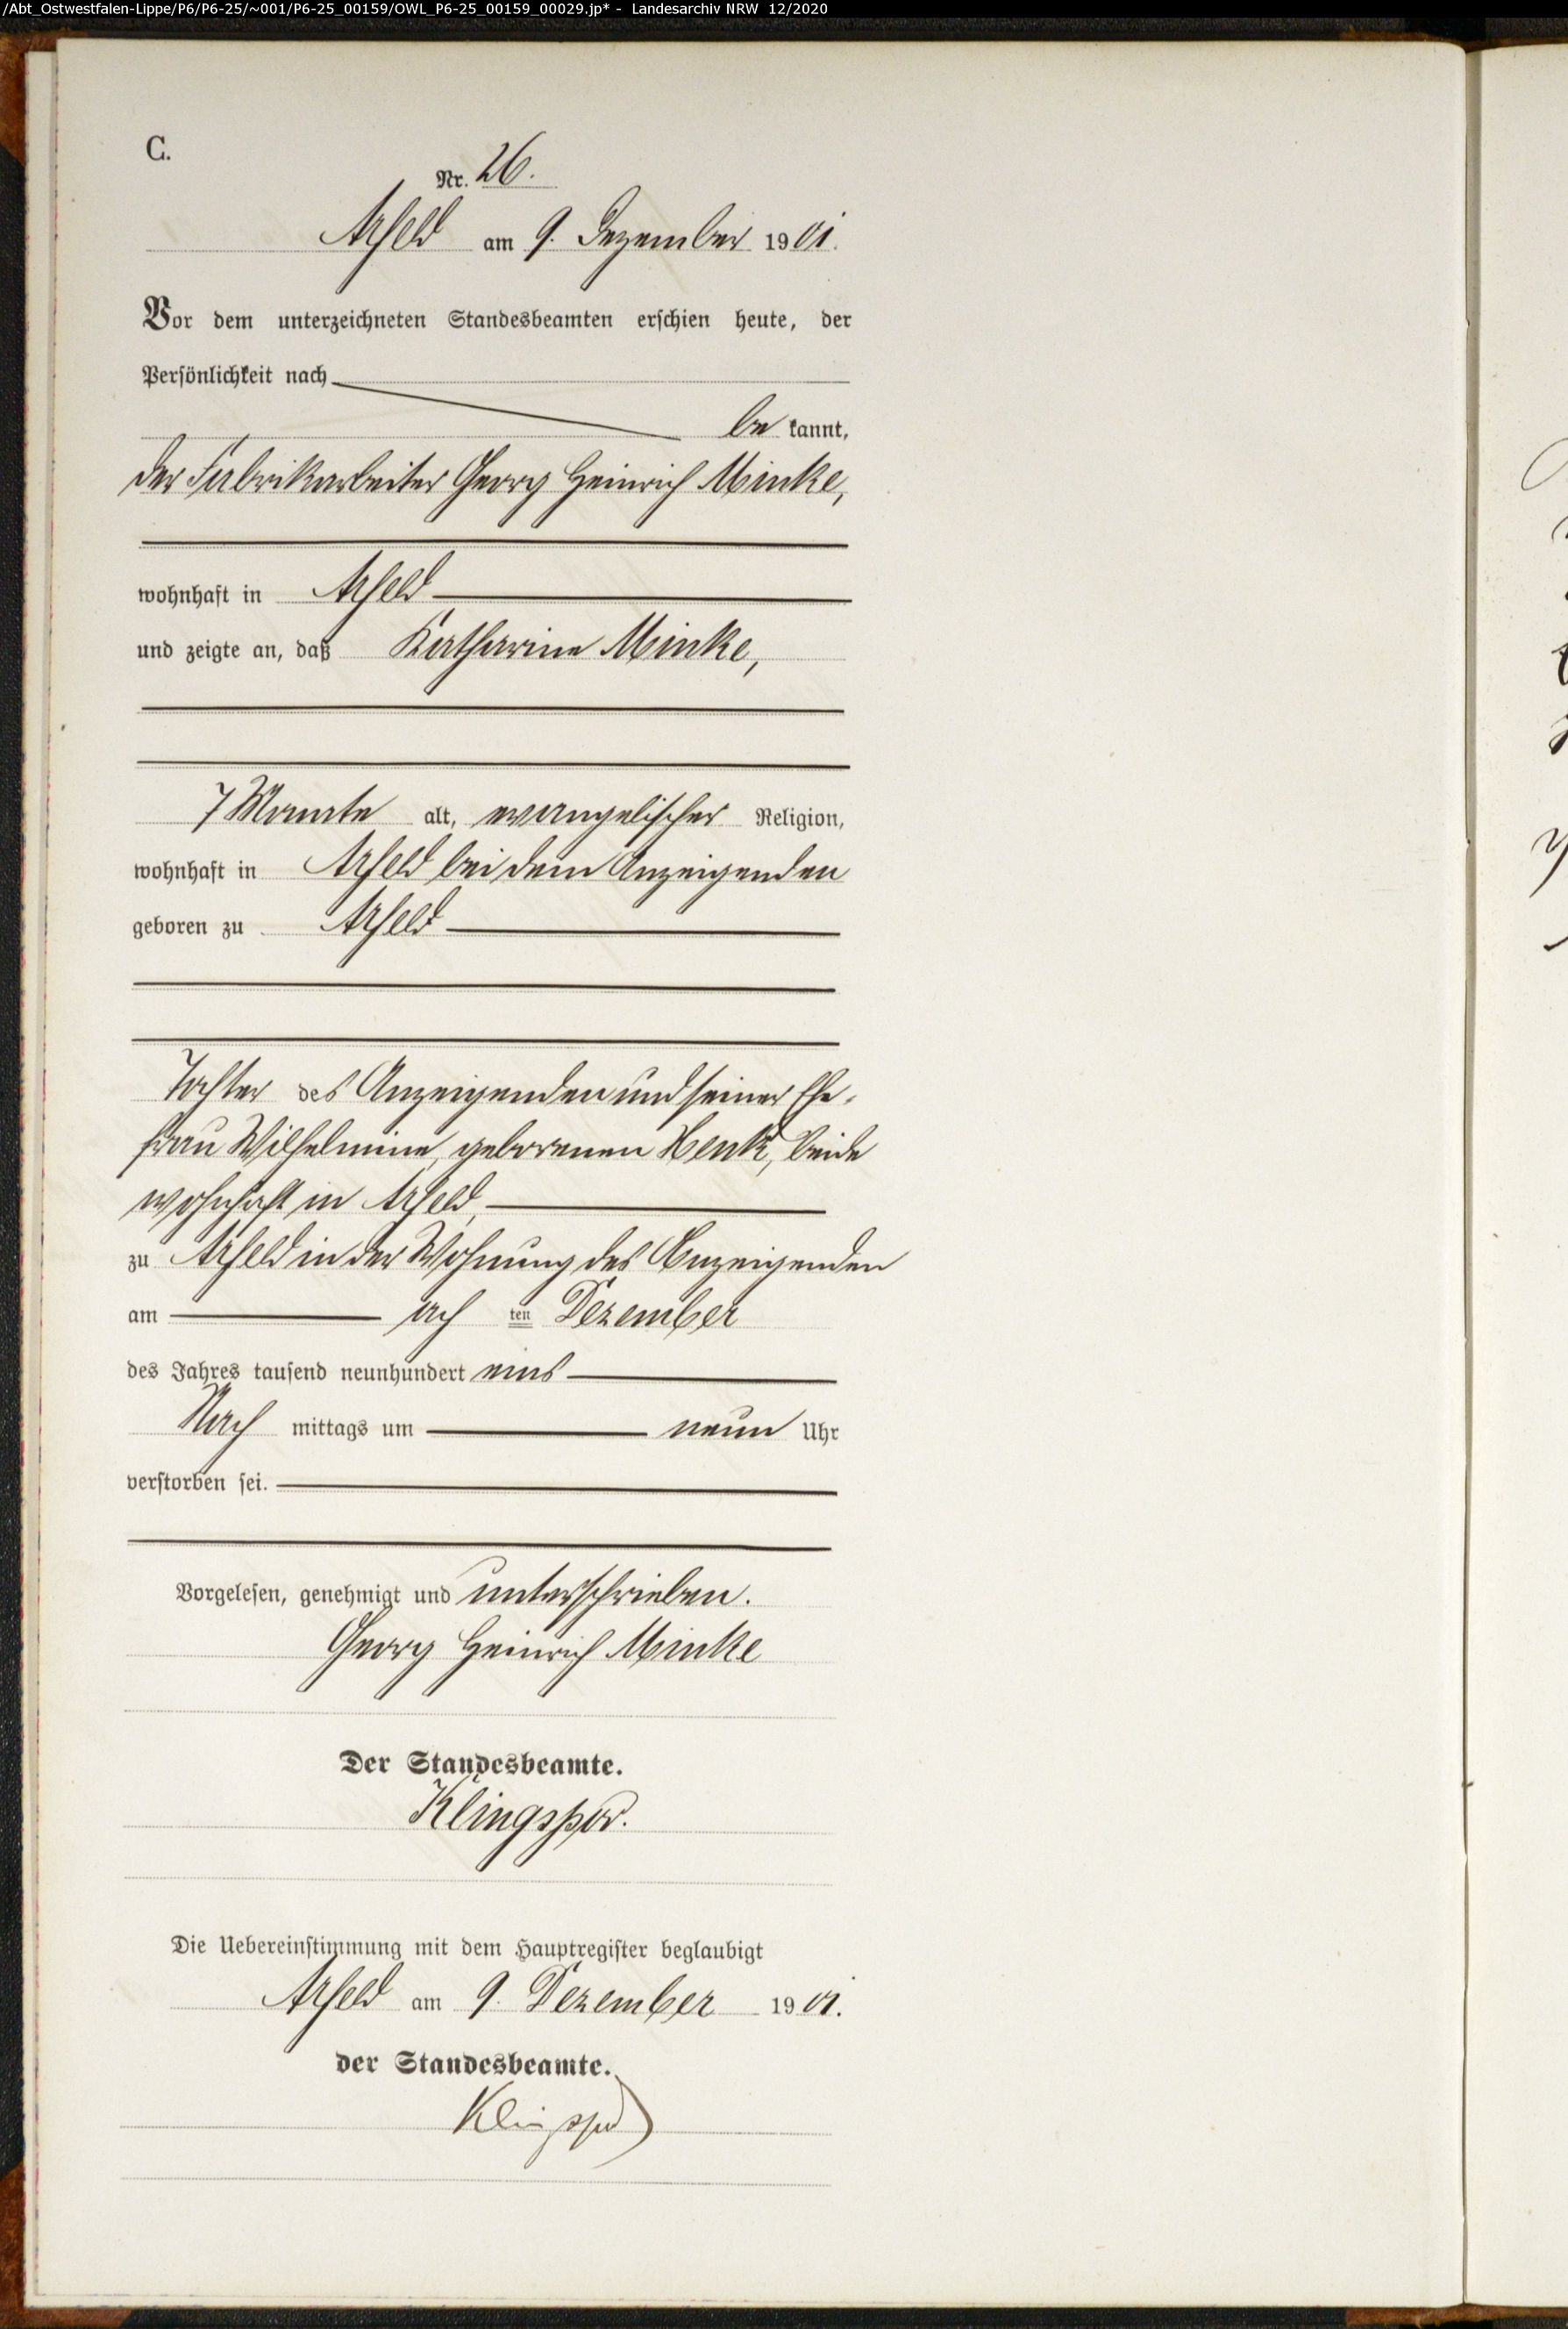 /Abt_Ostwestfalen-Lippe/P6/P6-25/~001/P6-25_00159/OWL_P6-25_00159_00029.jp* - Landesarchiv NRW 12/2020
C.
Nr. 26.
Arfeld am 9. Dezember 1901.
Vor dem unterzeichneten Standesbeamten erschien heute, der
Persönlichkeit nach
be kannt,
der Fabrikarbeiter Georg Heinrich Minke,
wohnhaft in Arfeld
und zeigte an, daß Katharine Minke,
7 Monate alt, evangelischer Religion,
wohnhaft in Arfeld bei dem Anzeigenden
geboren zu Arfeld
Tochter des Anzeigenden und seiner Ehe-
frau Wilhelmine, geborenen Henk, beide
wohnhaft in Arfeld,
zu Arfeld in der Wohnung des Anzeigenden
am ach ten Dezember
des Jahres tausend neunhundert eins
Nach mittags um neun Uhr
verstorben sei.
Vorgelesen, genehmigt und unterschrieben.
Georg Heinrich Minke
Der Standesbeamte.
Klingspor.
Die Uebereinstimmung mit dem Hauptregister beglaubigt
Arfeld am 9. Dezember 1901.
der Standesbeamte.
Klingspor